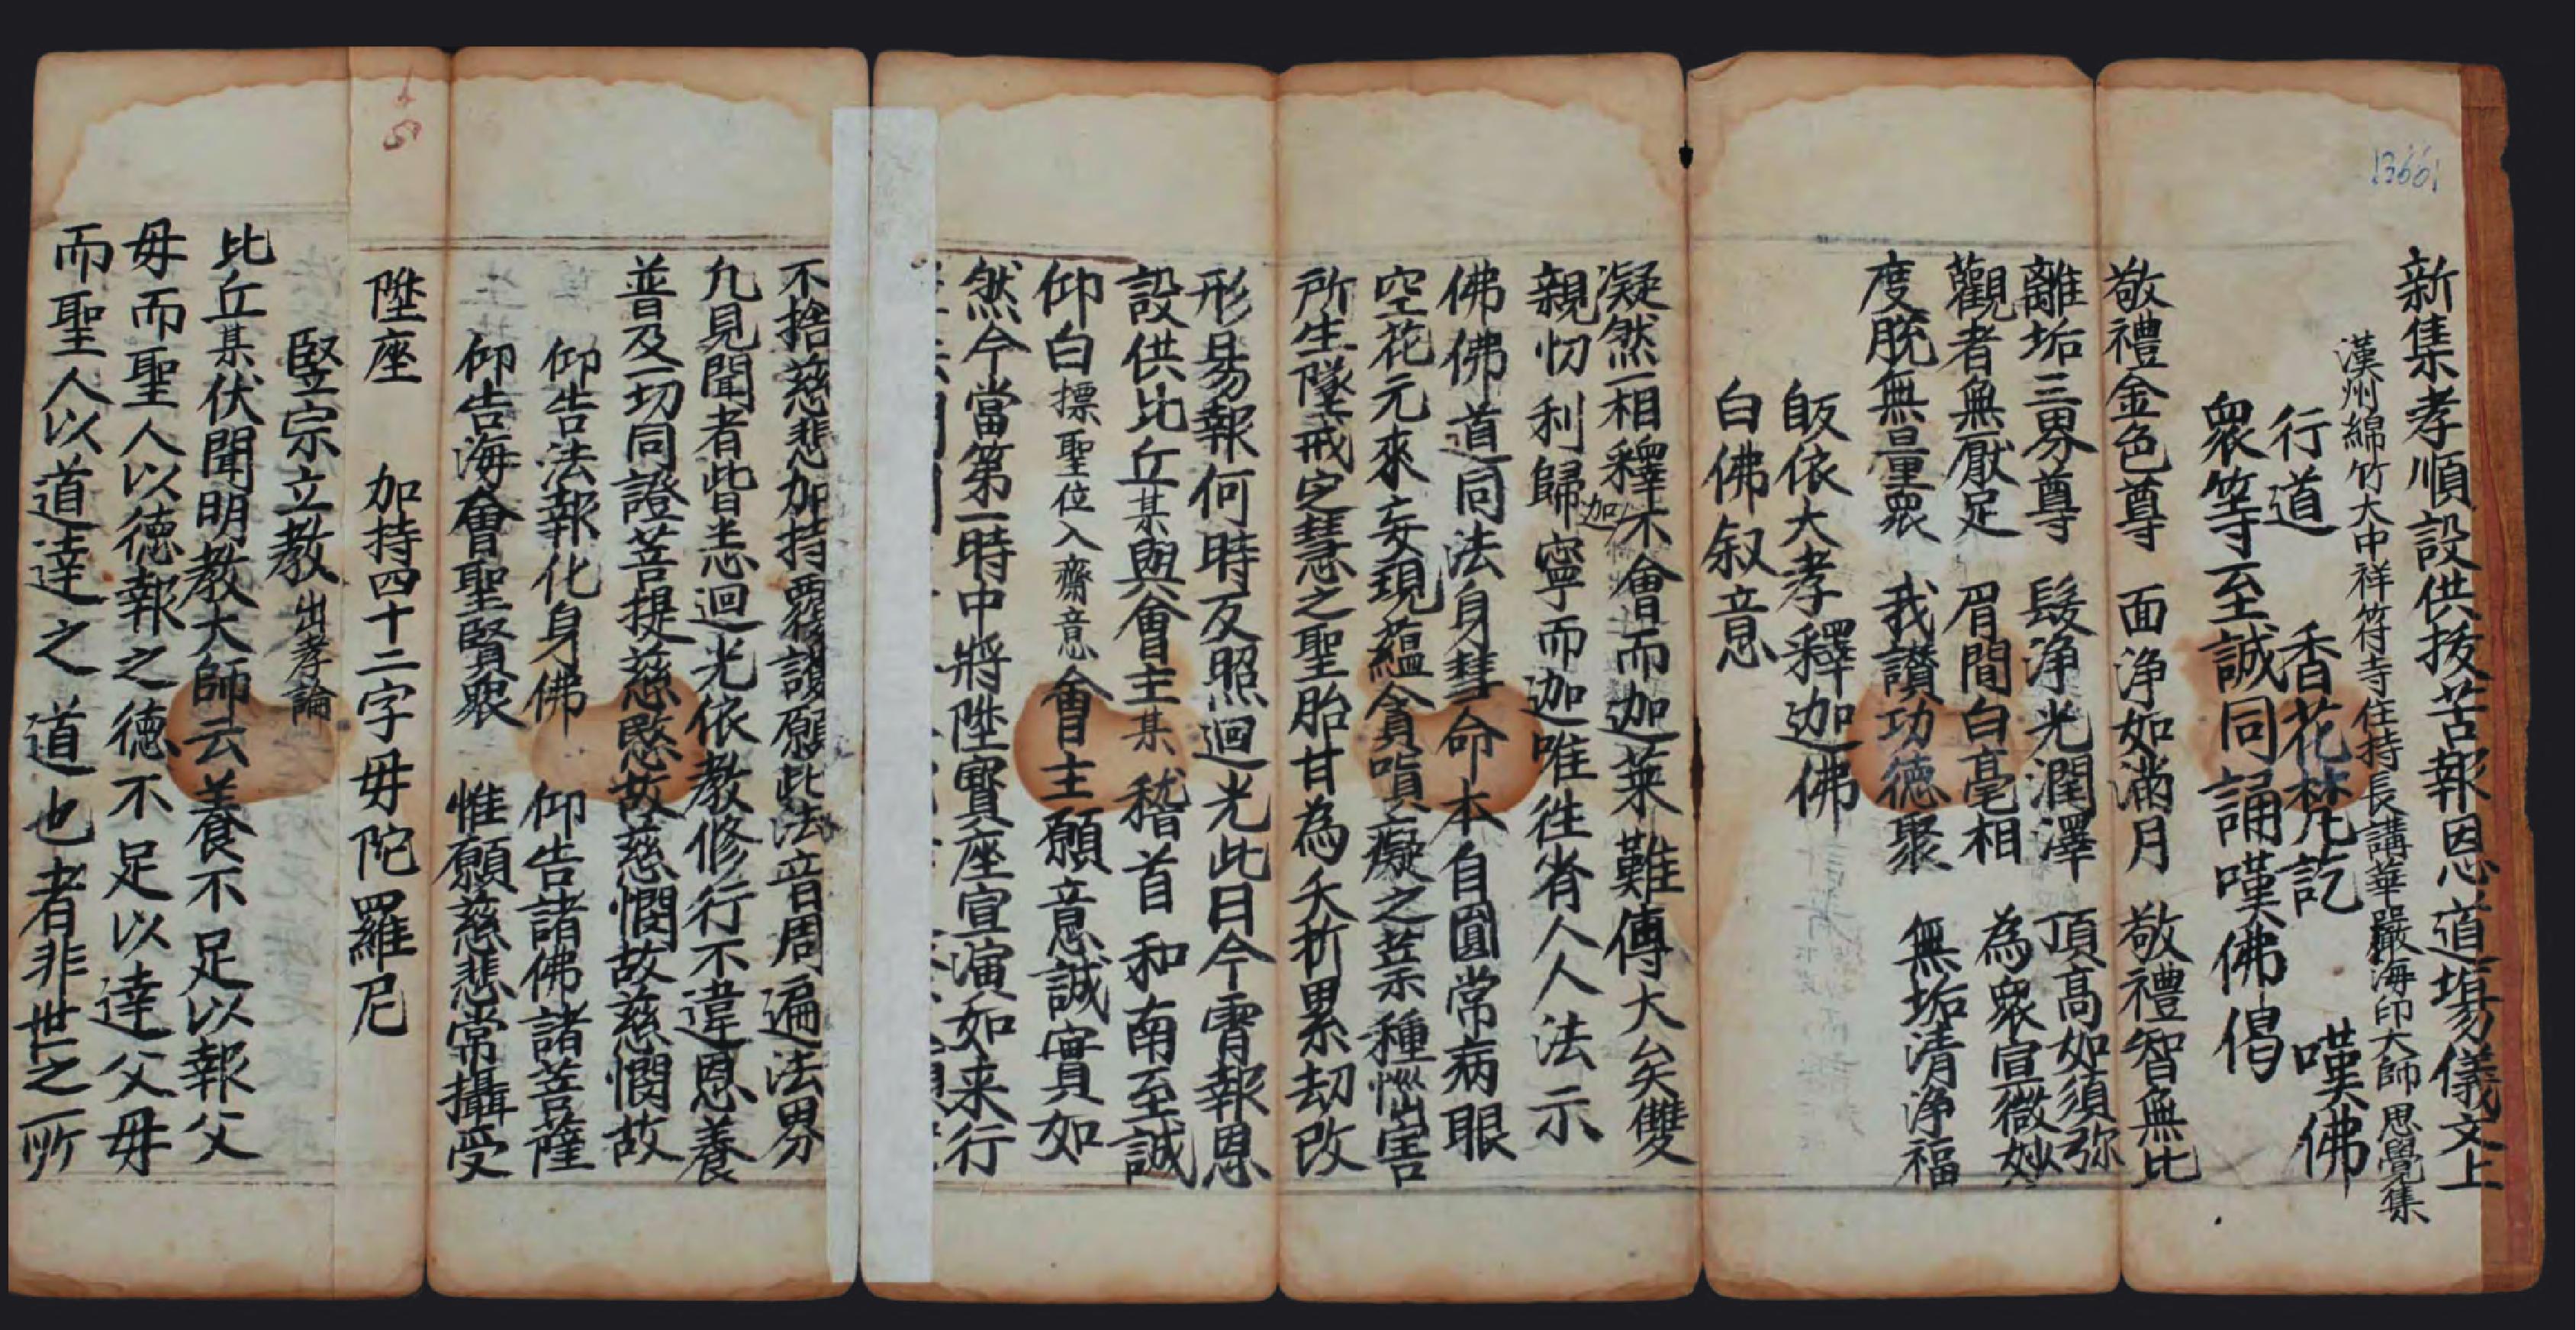 13661
新集孝順設供拔苦報恩道場儀文上
漢州綿竹大中祥符寺住持長講華嚴海印大師思覺集
行道 香花梵訖 嘆佛
衆等至誠同誦嘆佛偈
敬禮金色尊 面淨如滿月 敬禮智無比
離垢三界尊 髮淨光潤澤 頂高如須弥
觀者無厭足 眉間白毫相 為衆宣微妙
度脫無量衆 我讃功德聚 無垢清淨福
皈依大孝釋迦佛
白佛叙意
凝然一相釋迦木會而迦葉難傳大矣雙
親忉利歸寧而迦唯徃省人人法示
佛佛道同法身彗命本自圓常病眼
空花元來妄現蘊貪嗔癡之業種惱害
所生墜戒定慧之聖胎甘為夭折累劫改
形易報何時反照迴光此日今宵報恩
設供比丘某與會主某稽首和南至誠
仰白摽聖位入齋意會主願意誠實如
然今當第一時中將陞寳座宣演如来行
不捨慈悲加持覆護願此法音周遍法界
九見聞者皆悉迴光依教修行不違恩養
普及一切同證菩提慈愍故慈憫故慈憫故
仰告法報化身佛 仰告諸佛諸菩薩
仰告海會聖賢衆 惟願慈悲常攝受
陞座 加持四十二字毋陀羅尼
竪宗立教出孝論
比丘某伏聞明教大師云養不足以報父
毋而聖人以德報之德不足以達父毋
而聖人以道達之 道也者非世之所